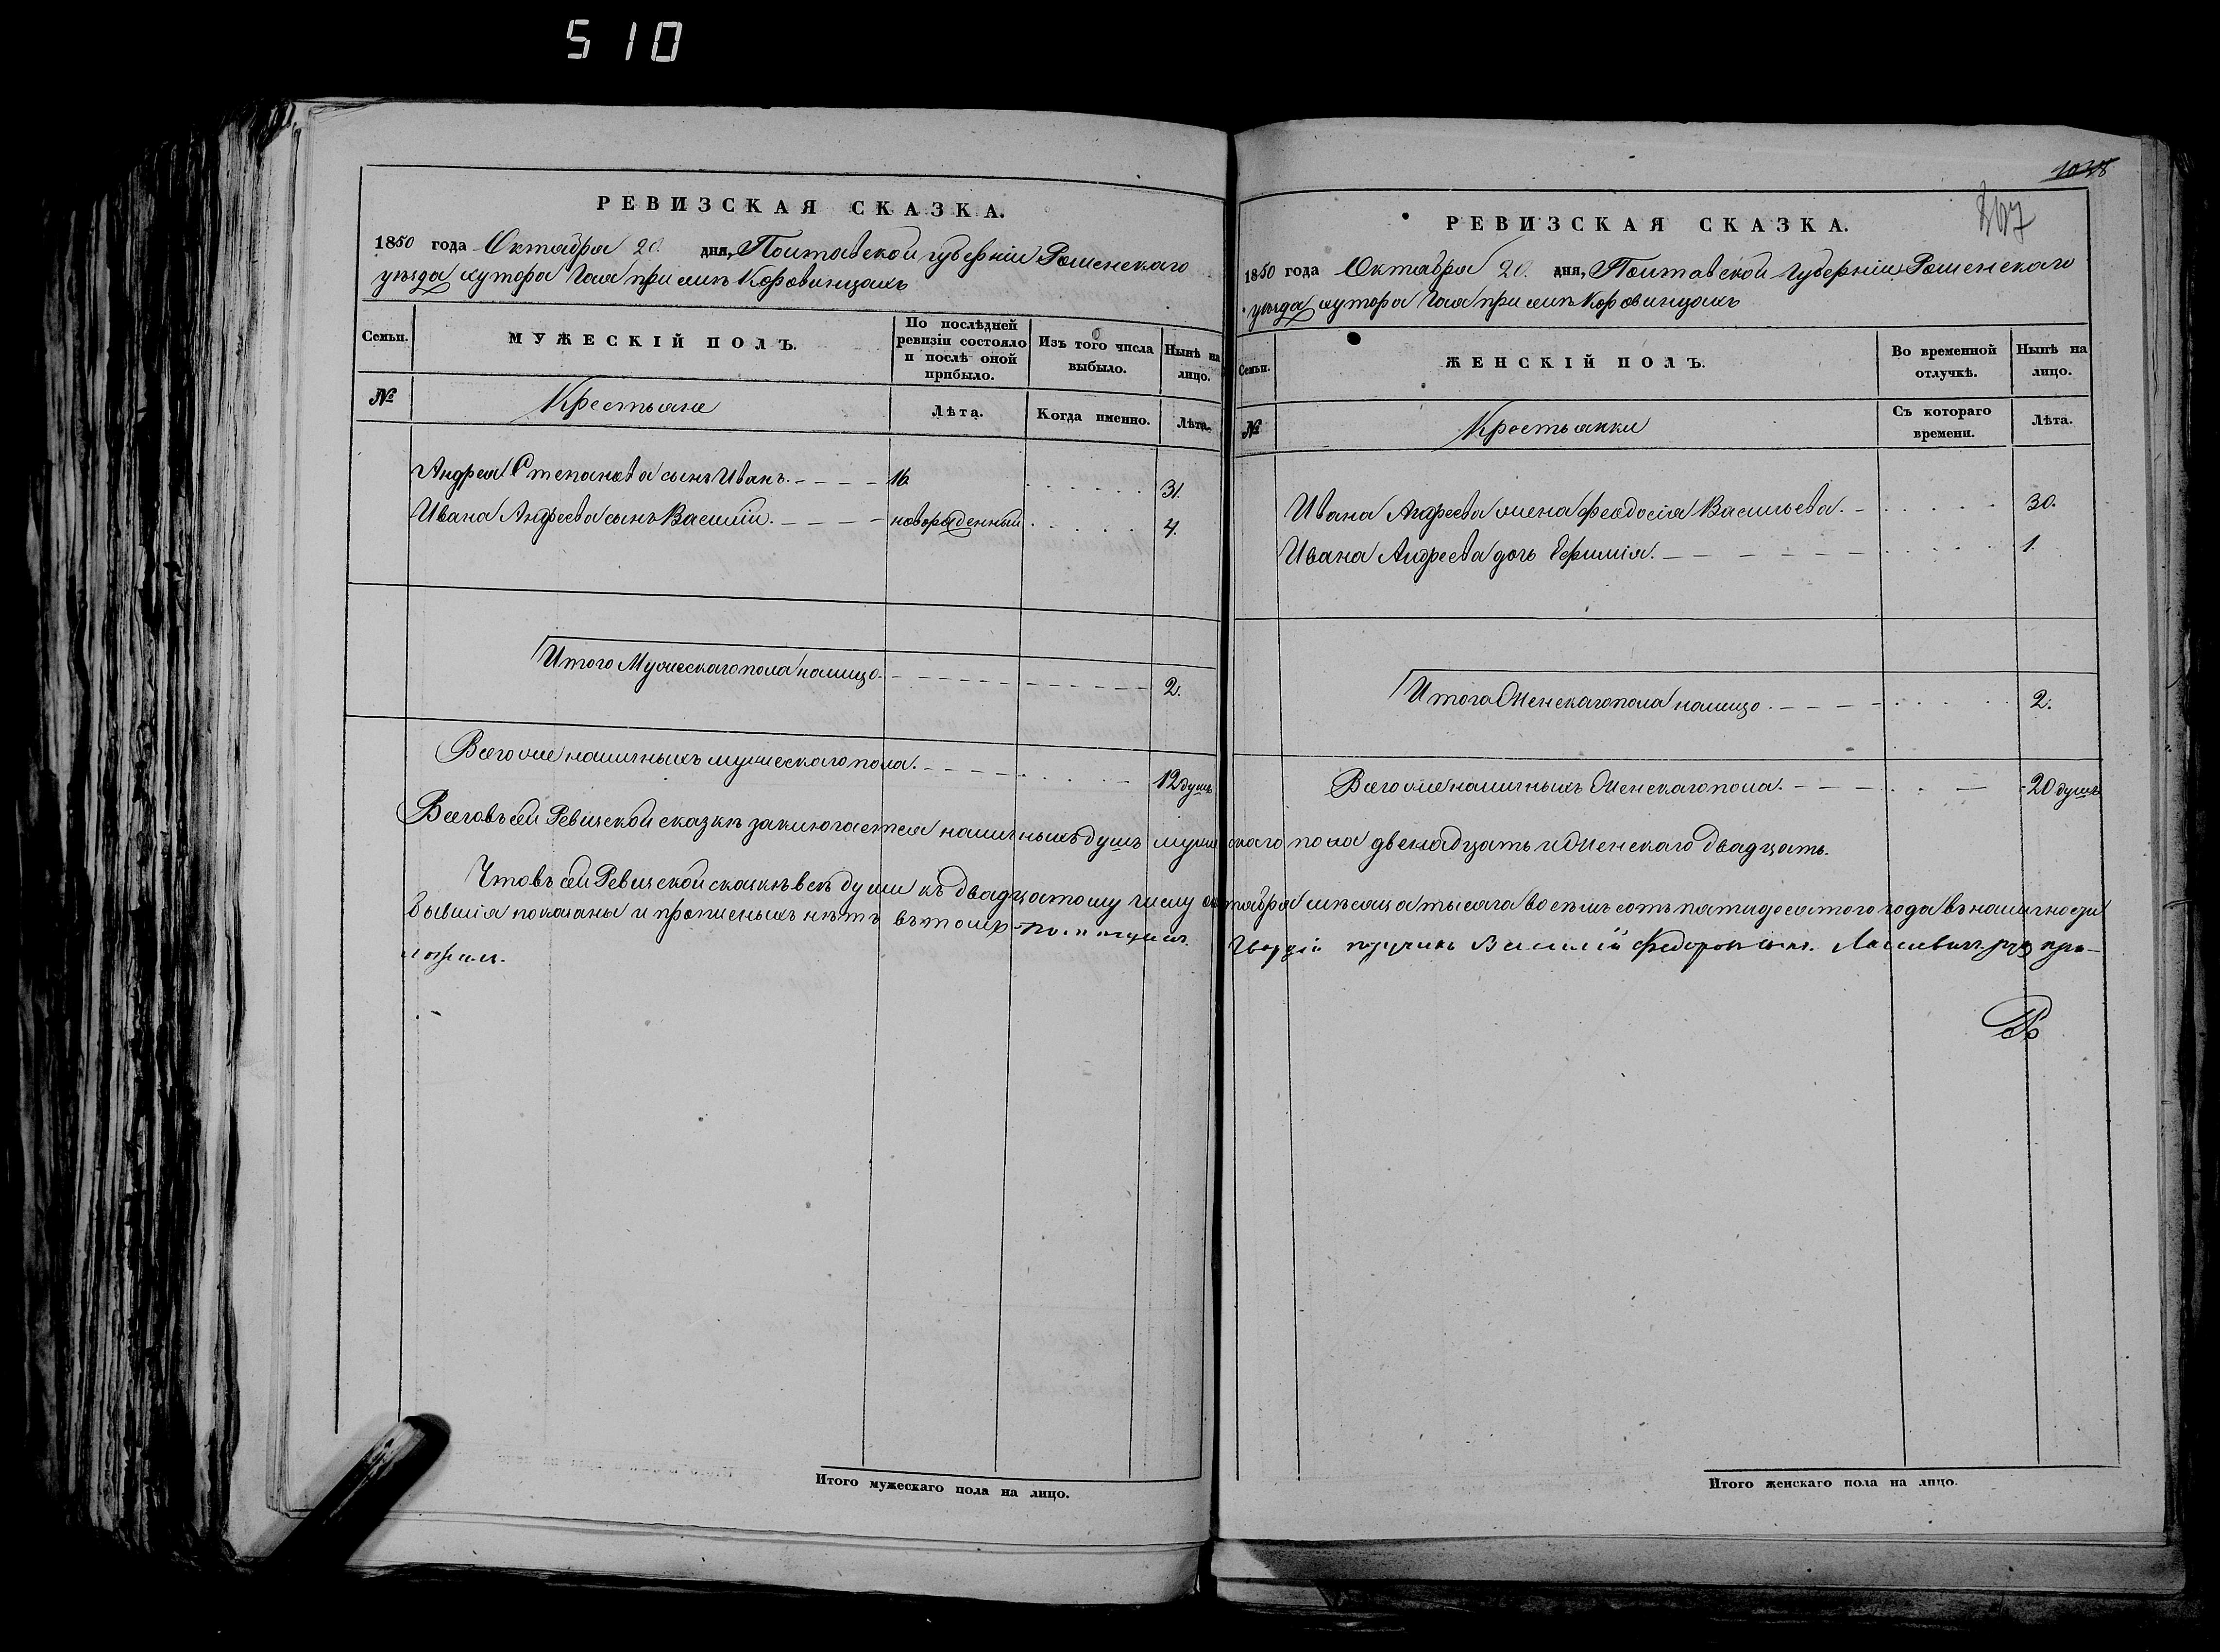 510
РЕВИЗСКАЯ СКАЗКА.
1850 года Октября 20. дня, Полтавской губерніи Роменскаго
уѣзда хутора Гая при селѣ Коровинцахъ
Семьи.
МУЖЕСКІЙ ПОЛЪ.
По послѣдней ревизіи состояло и послѣ оной прибыло.
Изъ того числа выбыло.
Нынѣ на лицо.
№
Крестьяне
Лѣта.
Когда именно.
Лѣта.
Андрея Степанова сынъ Иванъ. 16. 31.
Ивана Андреева сынъ Василій. новорожденный 4.
Итого Мужескаго пола налицо. 2.
Всего же наличныхъ мужескаго пола. 12 душъ
1038
367
РЕВИЗСКАЯ СКАЗКА.
1850 года Октября 20. дня, Полтавской Губерніи Роменскаго
уѣзда хутора Гая при селѣ Коровинцахъ
Семьи.
ЖЕНСКІЙ ПОЛЪ.
Во временной отлучкѣ.
Нынѣ на лицо.
№
Крестьянки
Съ котораго времени.
Лѣта.
Ивана Андреева жена Феодосія Васильева. 30.
Ивана Андреева дочь Ефимія. 1.
Итого Женскаго пола налицо. 2.
Всего же наличныхъ Женскаго пола. 20 душъ
Всего въ сей Ревизской сказкѣ заключается наличныхъ душъ мужескаго пола двенадцать и Женскаго двадцать.
Что въ сей Ревизской сказкѣ всѣ души къ двадцатому числу октября мѣсяца тысяча восемь сотъ пятидесятого года въ наличности
бывшія показаны и прописныхъ нѣтъ въ томъ Гвардіи поручикъ Василій Федоровъ сынъ руку при-
ложилъ.
Итого мужескаго пола на лицо.
Итого женскаго пола на лицо.